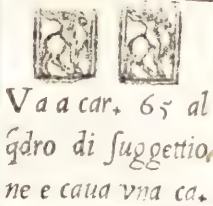 Va a car. 65 al
q̃dro di ſuggettio
ne e caua vna ca.